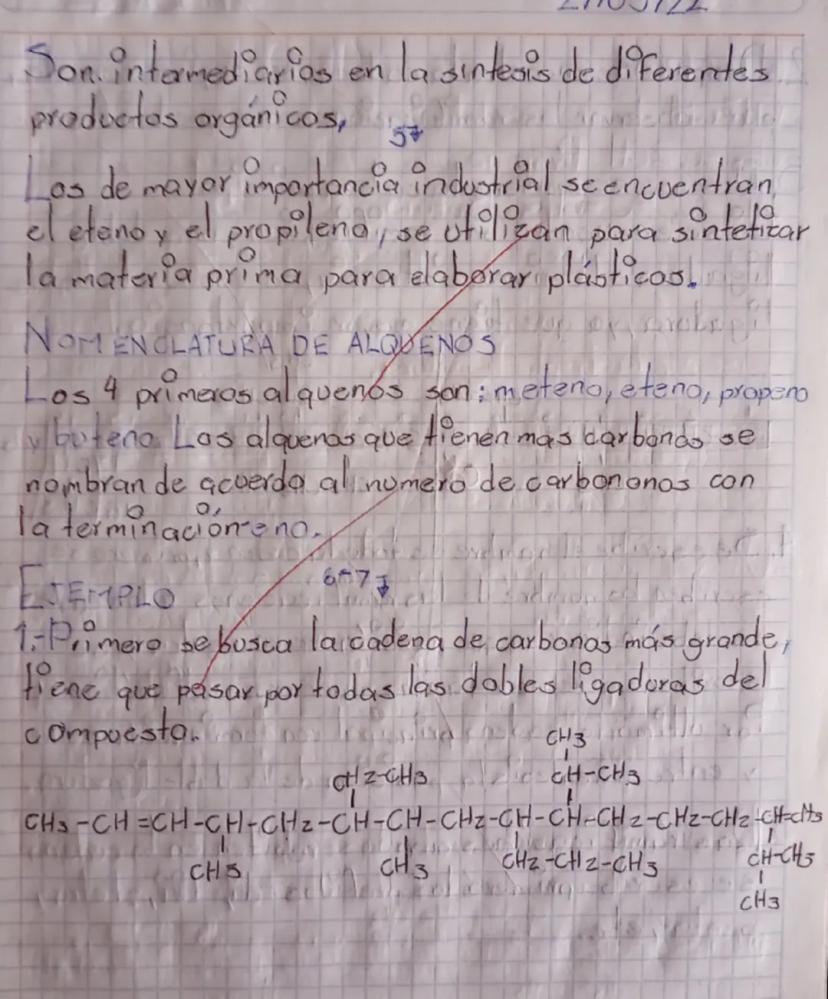 Son intermediarios en la sintesis de diferentes
productos orgánicos,
Los de mayor importancia industrial se encuentran
el eteno y el propileno, se utilizan para sintetizar
la materia prima para elaborar plásticos.
NOMENCLATURA DE ALQUENOS
Los 4 primeros alquenos son: meteno, eteno, propeno
y buteno. Los alquenos que tienen mas carbonos se
nombran de acuerdo al numero de carbononos con
la terminación-eno.
EJEMPLO
1.-Primero se busca la cadena de carbonos más grande,
tiene que pasar por todas las dobles ligaduras del
compuesto.
CH3
CH2-CH3 CH-CH3
CH3-CH=CH-CH-CH2-CH-CH-CH2-CH-CH-CH2-CH2-CH2-CH-CH3
CH3 CH3 CH2-CH2-CH3 CH-CH3
CH3